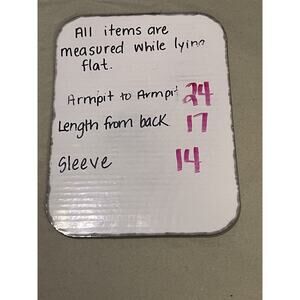 All items are
measured while lying
flat.
Armpit to Armpit 24
Length from back 17
Sleeve 14